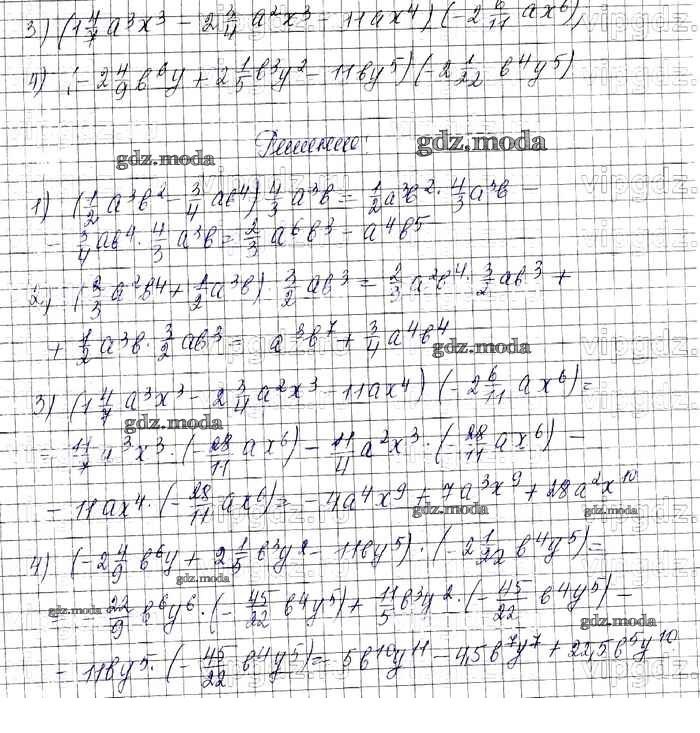 3) (1 4/7 a³x³ - 2 3/4 a²x³ - 11ax⁴) (-2 6/11 ax⁶),
4) (-2 4/9 b⁶y + 2 1/5 b³y² - 11by⁵) (-2 1/22 b⁴y⁵)
Решение:
gdz.moda
gdz.moda
1) (1/2 a³b² - 3/4 ab⁴) 4/3 a³b = 1/2 a³b² · 4/3 a³b -
- 3/4 ab⁴ · 4/3 a³b = 2/3 a⁶b³ - a⁴b⁵
2) (2/3 a²b⁴ + 1/2 a³b) · 3/2 ab³ = 2/3 a²b⁴ · 3/2 ab³ +
+ 1/2 a³b · 3/2 ab³ = a³b⁷ + 3/4 a⁴b⁴
gdz.moda
3) (1 4/7 a³x³ - 2 3/4 a²x³ - 11ax⁴) (-2 6/11 ax⁶) =
gdz.moda
= 11/7 a³x³ · (-28/11 ax⁶) - 11/4 a²x³ · (-28/11 ax⁶) -
- 11ax⁴ · (-28/11 ax⁶) = -4a⁴x⁹ + 7a³x⁹ + 28a²x¹⁰
gdz.moda
gdz.moda
4) (-2 4/9 b⁶y + 2 1/5 b³y² - 11by⁵) · (-2 1/22 b⁴y⁵) =
gdz.moda
= -22/9 b⁶y⁶ · (-45/22 b⁴y⁵) + 11/5 b³y² · (-45/22 b⁴y⁵) -
gdz.moda
- 11by⁵ · (-45/22 b⁴y⁵) = 5b¹⁰y¹¹ - 4,5b⁷y⁷ + 22,5b⁵y¹⁰